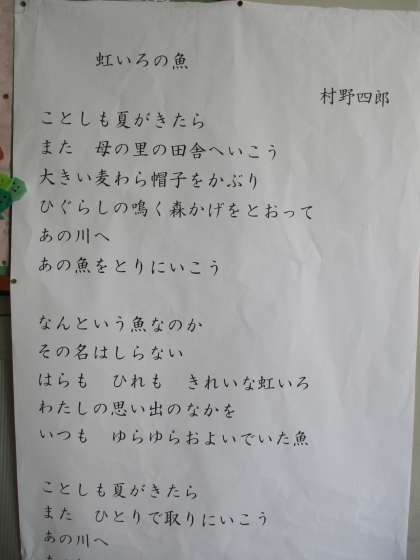 虹いろの魚
村野四郎
ことしも夏がきたら
また　母の里の田舎へいこう
大きい麦わら帽子をかぶり
ひぐらしの鳴く森かげをとおって
あの川へ
あの魚をとりにいこう
なんという魚なのか
その名はしらない
はらも　ひれも　きれいな虹いろ
わたしの思い出のなかを
いつも　ゆらゆらおよいでいた魚
ことしも夏がきたら
また　ひとりで取りにいこう
あの川へ